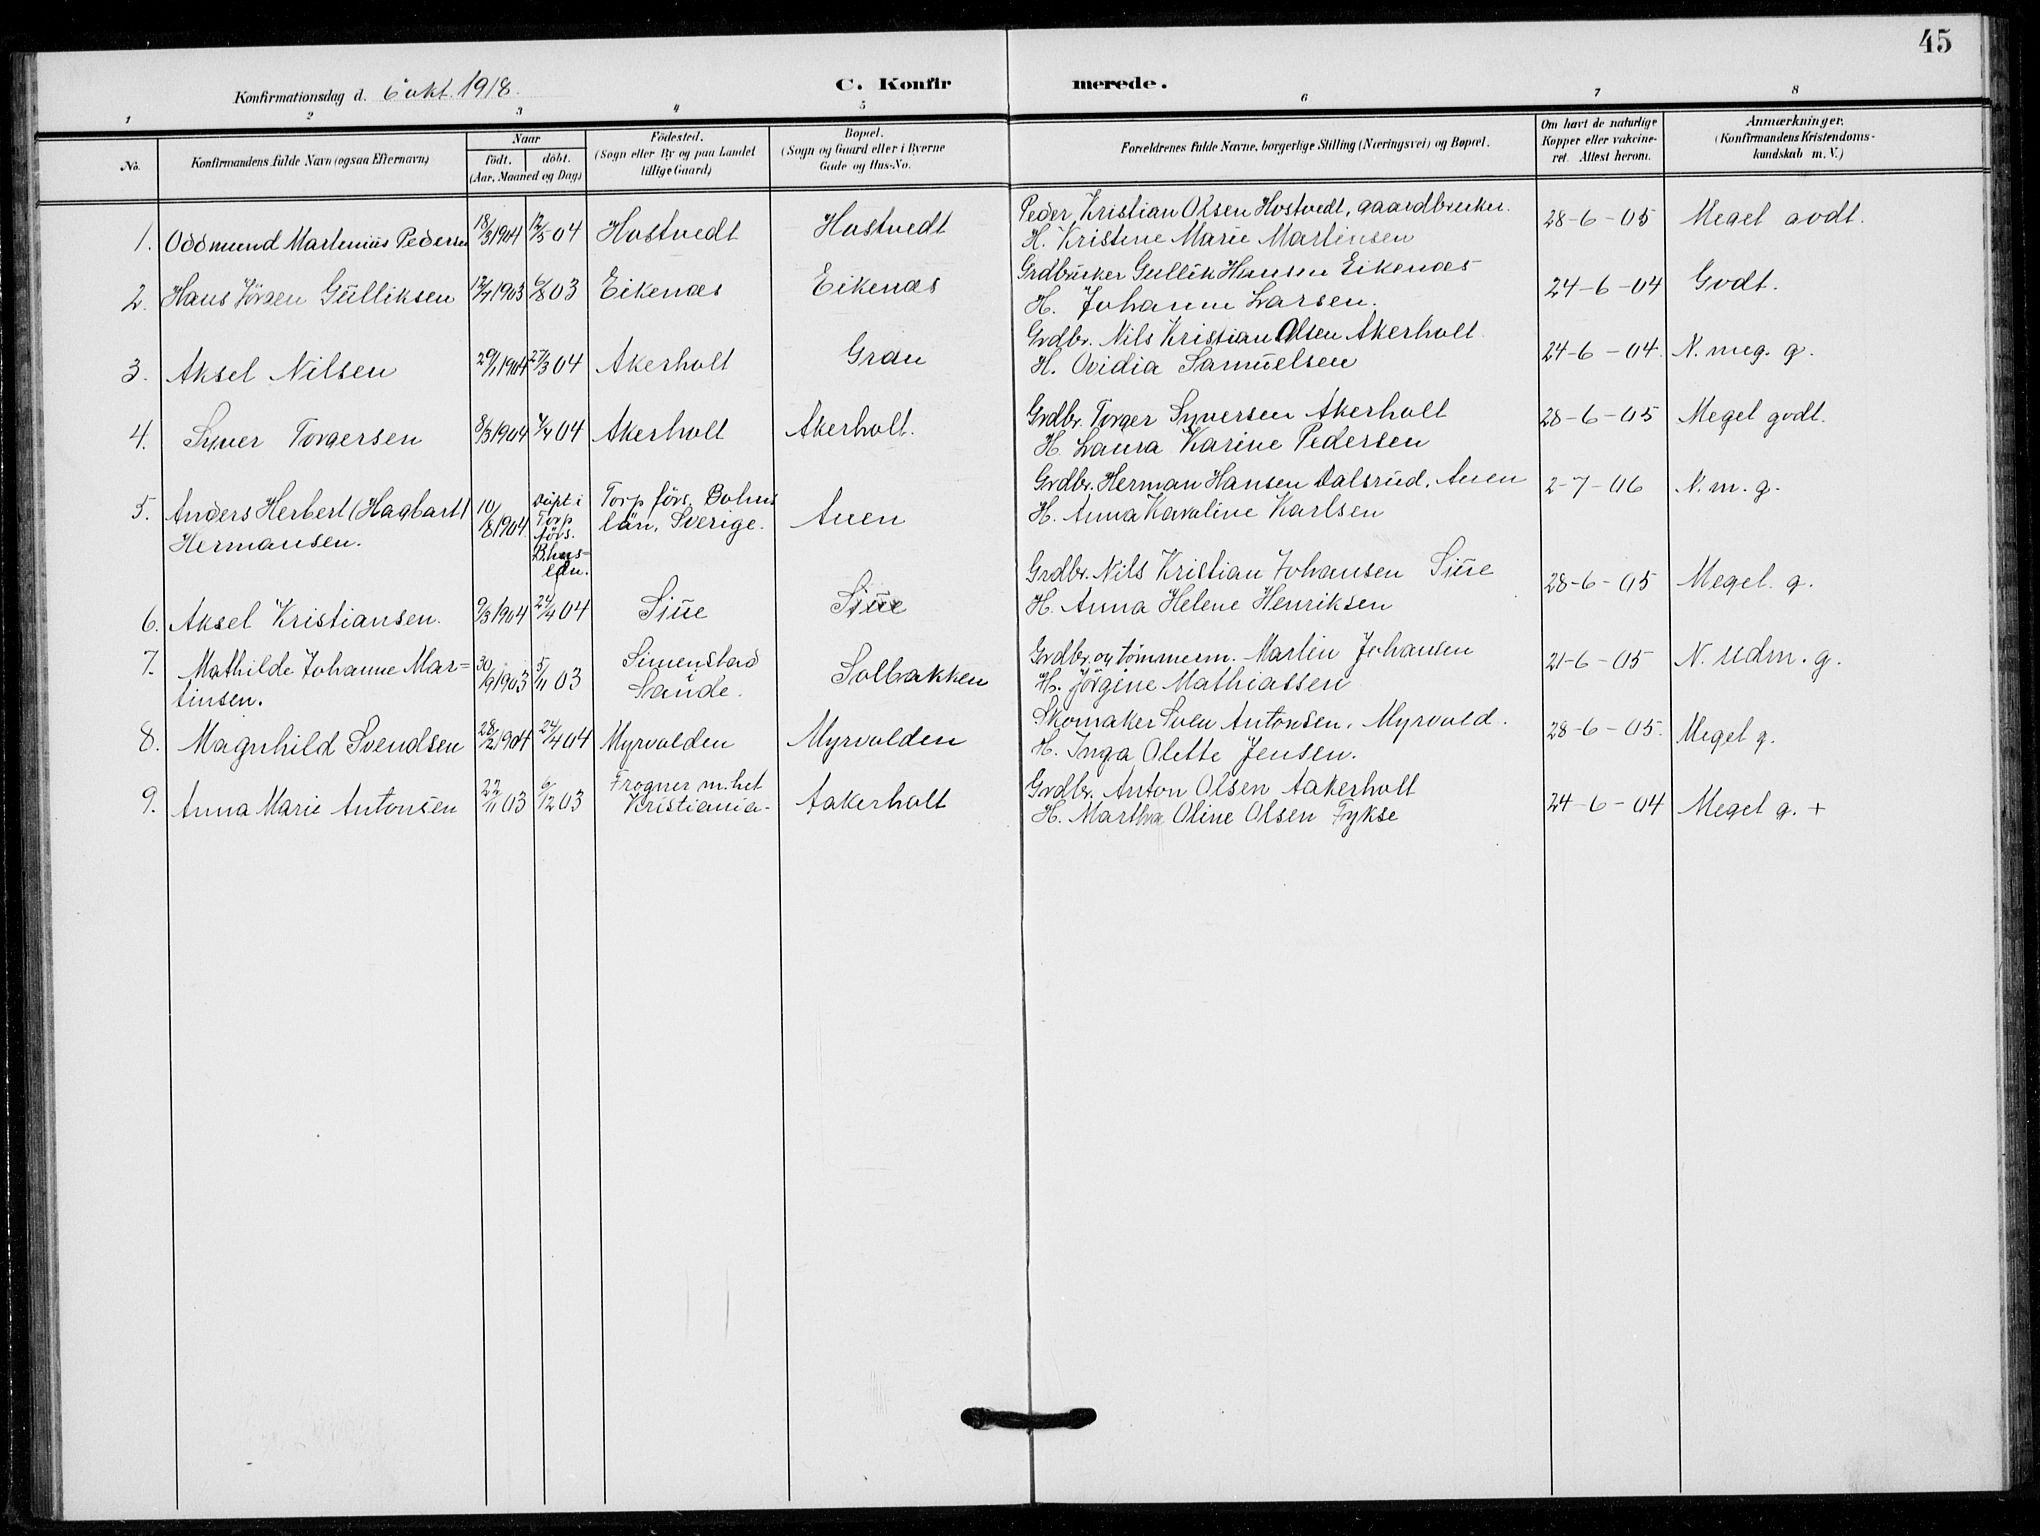 45
Konfirmationsdag d. 6 okt. 1918.
C. Konfirmerede.
1 2 3 4 5 6 7 8
No.
Konfirmandens fulde Navn (ogsaa Efternavn)
Naar
födt. döbt.
(Aar, Maaned og Dag)
Födested.
(Sogn eller By og paa Landet
tillige Gaard)
Bopæl.
(Sogn og Gaard eller i Byerne
Gade og Hus-No.
Forældrenes fulde Navne, borgerlige Stilling (Næringsvei) og Bopæl.
Om havt de naturlige
Kopper eller vakcine-
ret. Attest herom.
Anmærkninger.
(Konfirmandens Kristendoms-
kundskab m. V.)
1. Oddmund Martenius Pedersen 18/3 1904 12/5 04 Hostvedt Hostvedt
Peder Kristian Olsen Hostvedt, gaardbruker.
H. Kristine Marie Martinsen
28-6-05 Meget godt.
2. Hans Jörgen Gulliksen 1903 6/8 03 Eikenæs Eikenæs
Grdbruker Gullik Hansen Eikenæs
H. Johanne Larsen.
24-6-04 Godt.
3. Aksel Nilsen 29/1 1904 27/3 04 Akerholt Gran
Grdbr. Nils Kristian Olsen Akerholt
H. Ovidia Samuelsen
24-6-04. N. meg. g.
4. Syver Torgersen 8/3 1904 4/4 04 Akerholt Akerholt.
Grdbr. Torger Syversen Akerholt
H. Laura Karine Pedersen
28-6-05 Meget godt.
5. Anders Herbert (Hagbart)
Hermansen.
10/8 1904
Döpt i
Torp
förs.
B.hus-
län.
Torp förs. Bohus
län, Sverige.
Auen
Grdbr. Herman Hansen Dalsrud, Auen
H. Anna Karoline Karlsen
2-7-06 N. m. g.
6. Aksel Kristiansen. 9/3 1904 24/4 04 Siue Siue
Grdbr. Nils Kristian Johansen Siue
H. Anna Helene Henriksen
28-6-05 Meget g.
7. Mathilde Johanne Mar-
tinsen.
30/9 1903 5/11 03
Simenstad
Sande.
Solbakken
Grdbr. og tömmerm. Martin Johansen
H. Jörgine Mathiassen
21-6-05 N. udm. g.
8. Magnhild Svendsen 28/2 1904 24/4 04 Myrvolden Myrvolden
Skomaker Sven Antonsen, Myrvold.
H. Inga Olette Jensen.
28-6-05. Meget g.
9. Anna Marie Antonsen 22/11 03 6/12 03
Frogner m.het
Kristiania.
Aakerholt
Grdbr. Anton Olsen Aakerholt
H. Martha Oline Olsen Fykse
24-6-04 Meget g. +